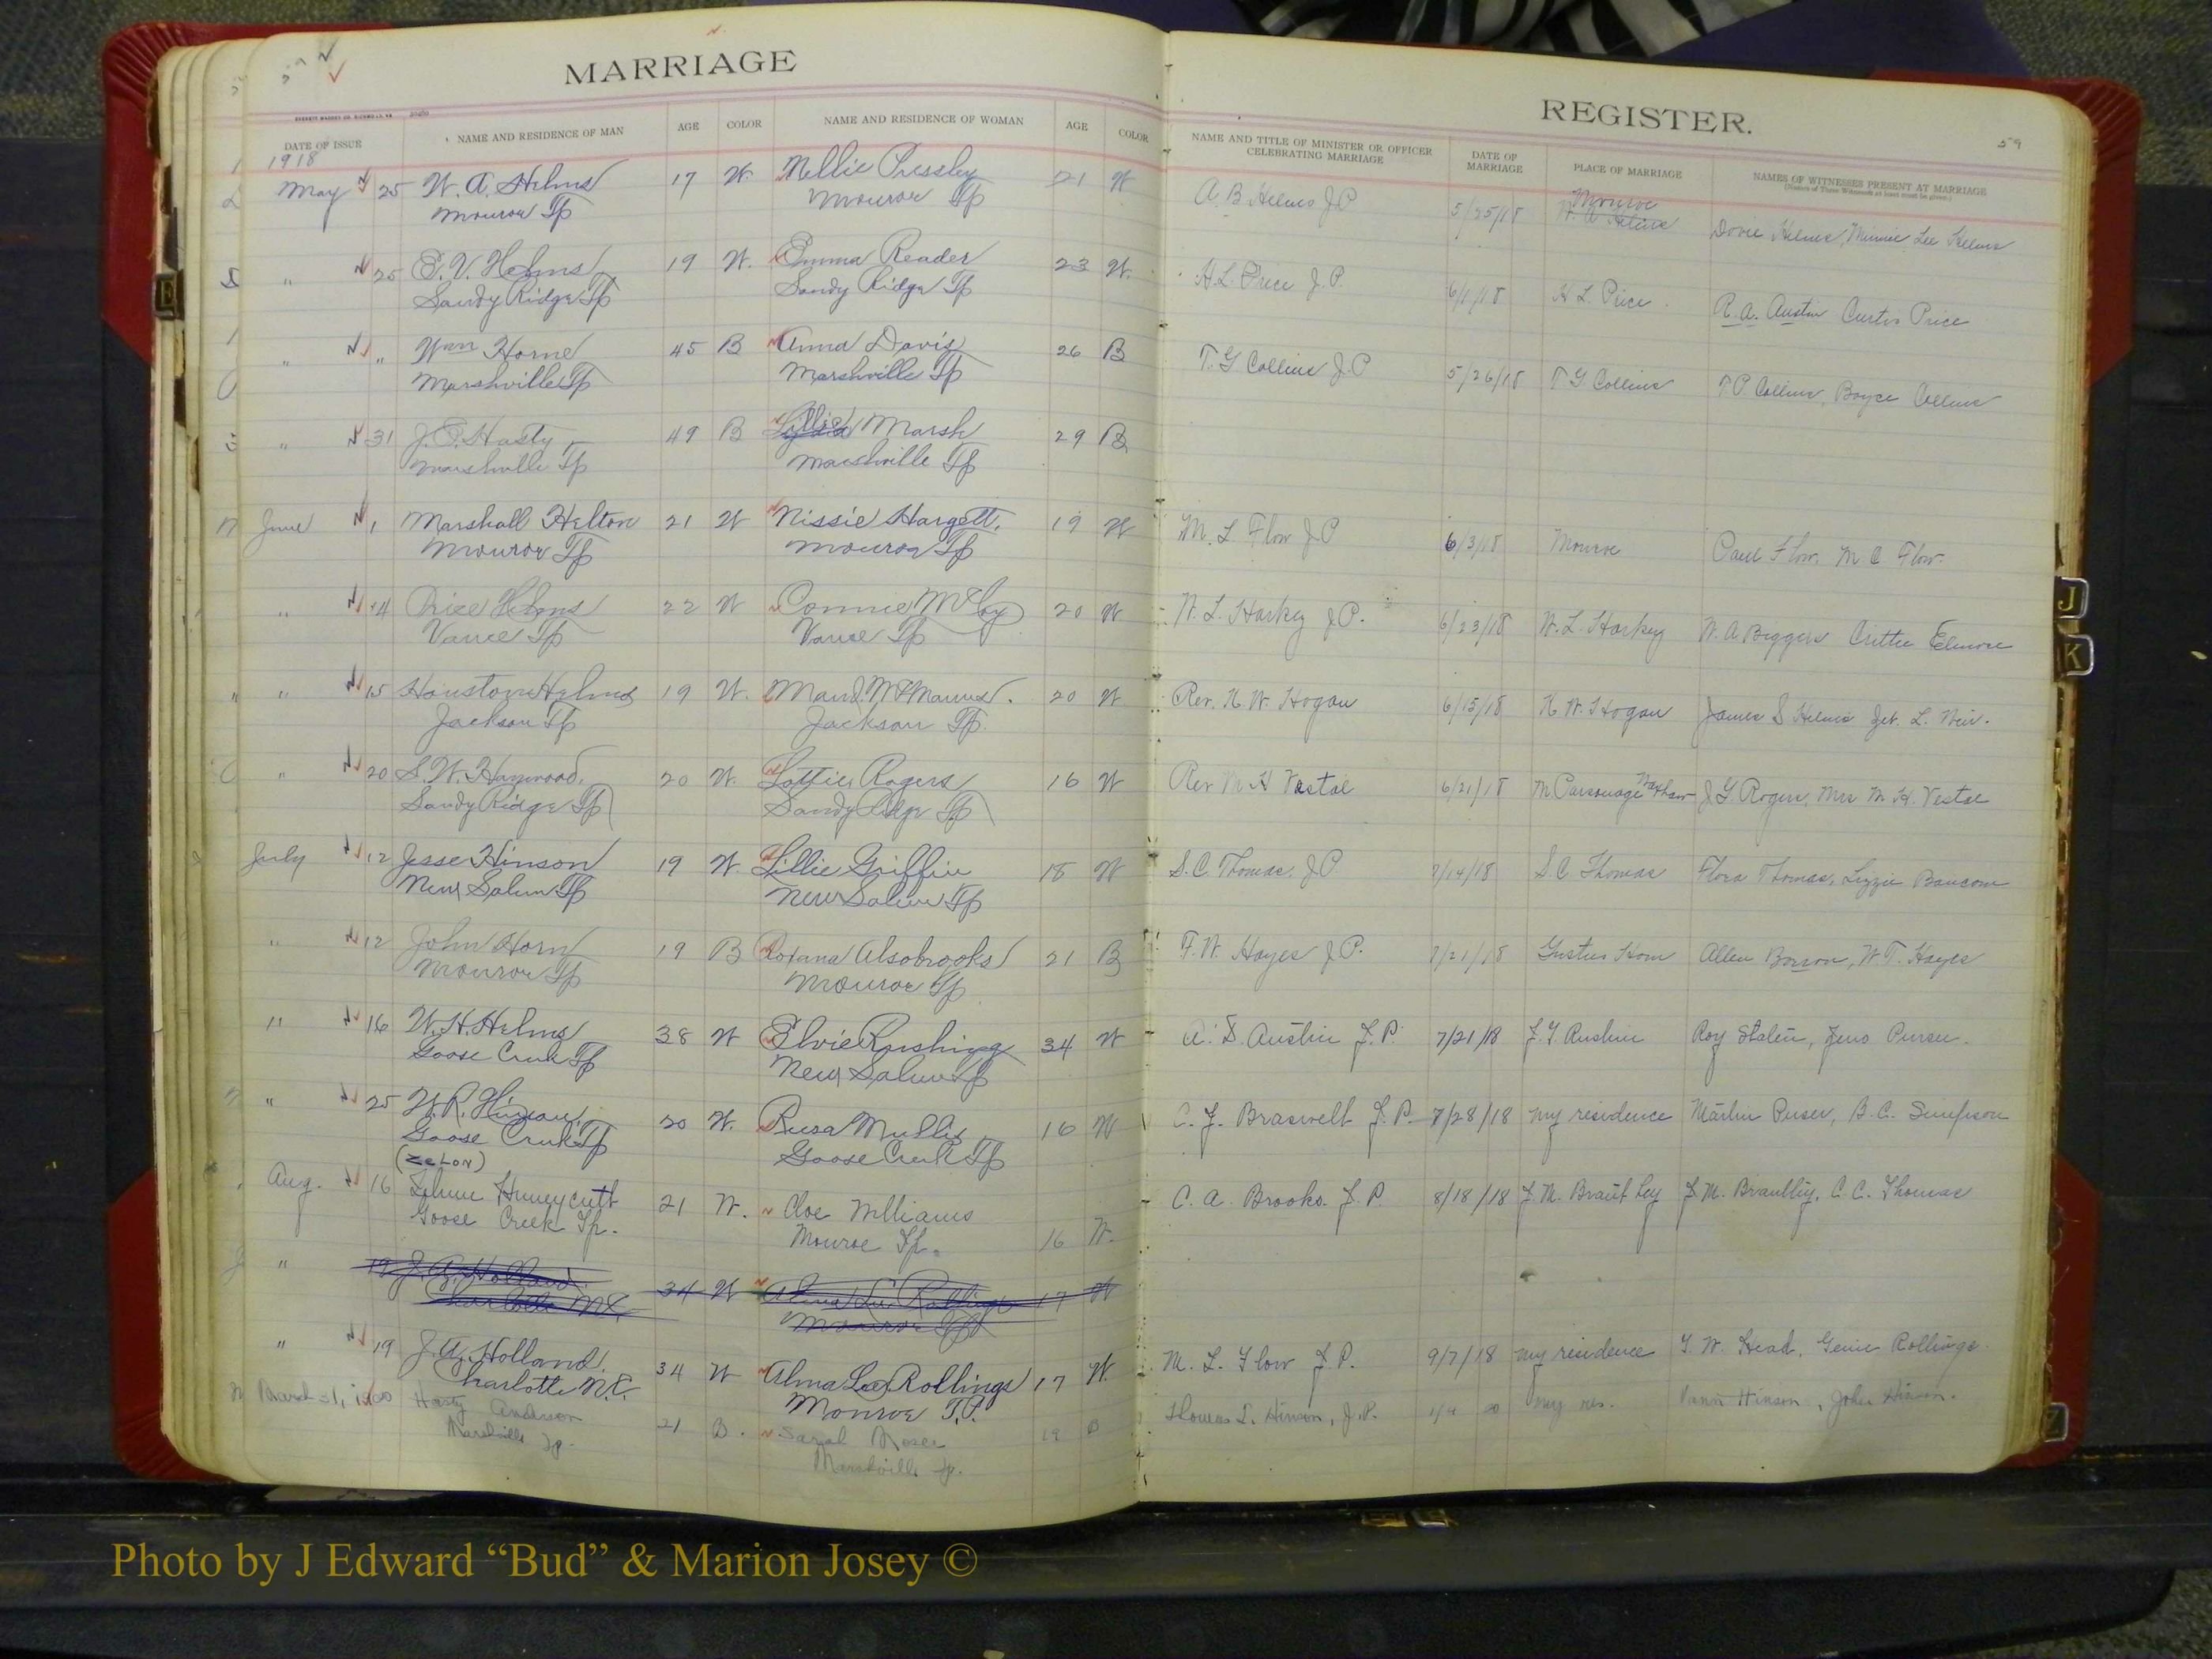 MARRIAGE
REGISTER.
59
DATE OF ISSUE
NAME AND RESIDENCE OF MAN
AGE
COLOR
NAME AND RESIDENCE OF WOMAN
AGE
COLOR
NAME AND TITLE OF MINISTER OR OFFICER
CELEBRATING MARRIAGE
DATE OF
MARRIAGE
PLACE OF MARRIAGE
NAMES OF WITNESSES PRESENT AT MARRIAGE
(Names of Three Witnesses at least must be given.)
1918
May 25 W. A. Helms 17 W. Nellie Pressley 21 W A. B. Helms J.P. 5/25/18 Monroe Dovie Helms, Minnie Lee Helms
Monroe Tp Monroe Tp
" 25 E. V. Helms 19 W. Emma Reader 23 W. H. L. Price J.P. 6/1/18 H. L. Price R. A. Austin Curtis Price
Sandy Ridge Tp Sandy Ridge Tp
" " Wm Horne 45 B Anna Davis 26 B T. G Collins J.P 5/26/18 T G Collins T P Collins, Boyce Collins
Marshville Tp Marshville Tp
" 31 J. E. Hasty 49 B Lillie Marsh 29 B
Marshville Tp Marshville Tp
June 1 Marshall Helton 21 W Nissie Hargett. 19 W M. L Flow J P 6/3/18 Monroe Paul Flow, M C Flow.
Monroe Tp Monroe Tp
" 14 Price Helms 22 W Connie McCoy 20 W W. L. Harkey J.P. 6/23/18 W. L. Harkey W. A Biggers Crittie Elmore
Vance Tp Vance Tp
" 15 Houston Helms 19 W. Maud McManus. 20 W Rev. K W. Hogan 6/15/18 K W. Hogan James S Helms
Jackson Tp Jackson Tp.
" 20 S. W. Haywood. 20 W. Lottie Rogers 16 W Rev M H Vestal 6/21/18 M Parsonage Waxhaw J G. Rogers, Mrs M. H. Vestal
Sandy Ridge Tp Sandy Ridge Tp
July 12 Jesse Hinson 19 W. Lillie Griffin 18 W S. C. Thomas, J P 7/14/18 S C Thomas Flora Thomas, Lizzie Baucom
New Salem Tp New Salem Tp
" 12 John Horn 19 B Roxana Alsobrooks 21 B F. W. Hayes J P. 7/21/18 Gustus Horn Allen, W T. Hayes
Monroe Tp Monroe Tp
" 16 W. H. Helms 38 W Elvie Rushing 34 W A. S. Austin J. P. 7/21/18 Roy Staten, Zeno
Goose Creek Tp New Salem Tp
" 25 W. R. Hinson 20 W. Rusa Mullis 16 W C. J. Braswell J. P. 7/28/18 my residence Martin Purser, B. C. Simpson
Goose Creek Tp Goose Creek Tp
(ZELON)
Aug. 16 Huneycutt 21 W. Cloe Williams 16 W. C. A. Brooks. J. P. 8/18/18 J. M. Brantley J. M. Brantley, C. C. Thomas
Goose Creek Tp. Monroe Tp.
" 19 J. A. Holland. 34 W Alma Lee Rollings 17 W
Charlotte N.C. Monroe Tp
" 19 J. A. Holland. 34 W Alma Lee Rollings 17 W. M. L. Flow J. P. 9/7/18 my residence T. W. Head, Genie Rollings.
Charlotte N.C. Monroe T.P.
March 31, 1900 Hasty Anderson 21 B. Sarah 19 B Thomas L. Hinson, J.P. my res. Vann Hinson, John Hinson.
Marshville Tp. Marshville Tp.
J
K
Photo by J Edward “Bud” & Marion Josey ©